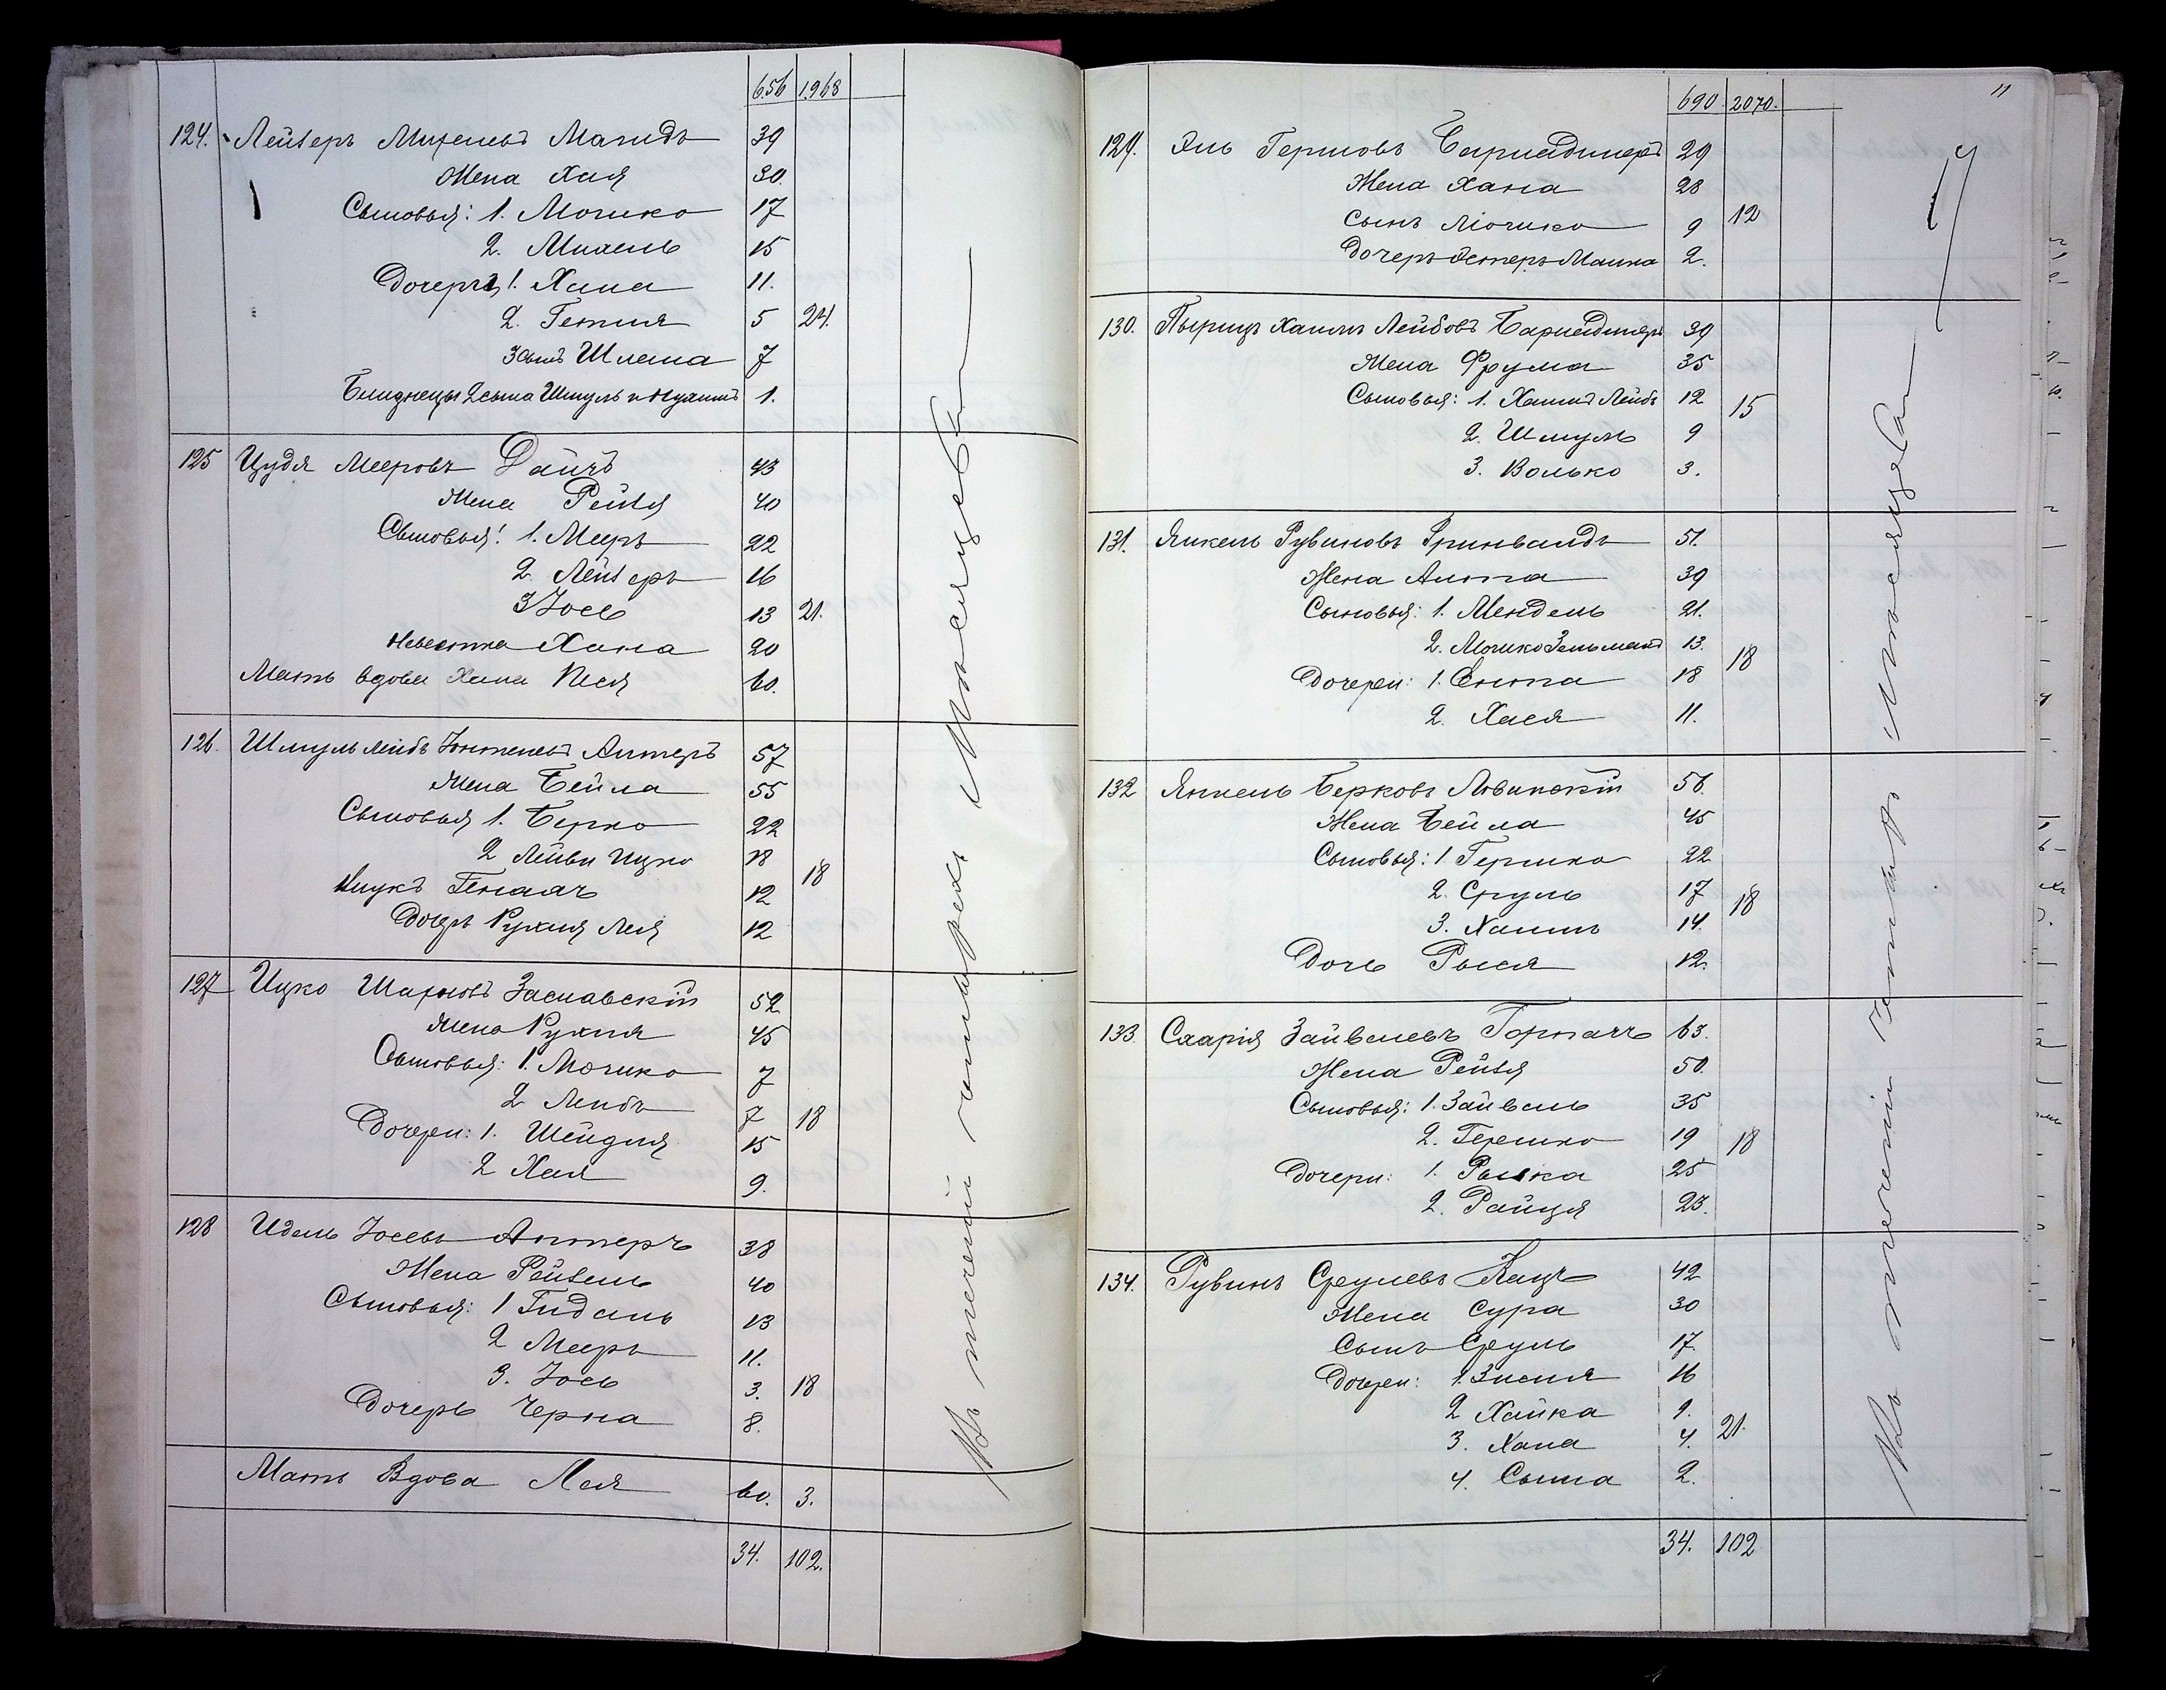 656 1968
124. Лейзеръ Михелевъ Магидъ 39
Жена Хая 30.
Сыновья: 1. Мошко 17
2. Михель 15
Дочери, 1. Хана 11.
2. Гения 5 24.
3 сынъ Шлема 7
Близнецы 2 сына Шмуль и Нухимъ 1.
125 Цудя Мееровъ Дайчъ 43
Жена Рейзя 40
Сыновья: 1. Мееръ 22
2. Лейзеръ 16
3 Іось 13 21.
Невестка Хана 20
Мать вдова Хана Песя 60.
126. Шмуль Лейбъ Антеръ 57
Жена Бейла 55
Сыновья 1. Берко 22
2 Лейви Ицко 18
Внукъ 12 18
Дочеръ Рухля Лея 12
127 Ицко Заславскій 52
Жена Рухля 45
Сыновья: 1. Мошко 7
2 Лейбъ 7 18
Дочери: 1. Шейндля 15
2 Хая 9.
128 Идель Іосевъ Антеръ 38
Жена Рейзель 40
Сыновья: 1 Гидаль 13
2 Мееръ 11.
3. Іось 3. 18
Дочерь Черна 8.
Мать Вдова Лея 60. 3.
34. 102.
Въ теченіи мѣсяцевъ
690. 2070. 11
129. Эль Гершовъ 29
Жена Хана 28
Сынъ Мошко 9 12
Дочеръ Эстеръ Малка 2.
130. Хаимъ Лейбовъ 39
Жена Фрума 35
Сыновья: 1. Хаимъ Лейбъ 12 15
2. Шмуль 9
3. Волько 3.
131. Янкель Рувиновъ Гринвалдъ 51.
Жена Анта 39
Сыновья: 1. Мендель 21.
2. Мошко Зельманъ 13. 18
Дочери: 1. Ента 18
2. Хася 11.
132 Янкель Берковъ 56.
Жена Бейла 45
Сыновья: 1 Гершко 22
2. Сруль 17 18
3. Хаимъ 14.
Дочь Рыся 12.
133. Схарія Зайвелевъ Горначъ 63.
Жена Рейзя 50.
Сыновья: 1. Зайвель 35
2. Гершко 19 18
Дочери: 1. Рывка 25
2. Райця 23.
134. Рувинъ Срулевъ Кацъ 42
Жена Сура 30
Сынъ Сруль 17.
Дочери: 1. Зисля 16
2 Хайка 9.
3. Хана 4. 21.
4. Сыма 2.
34. 102
Въ теченіи мѣсяцевъ